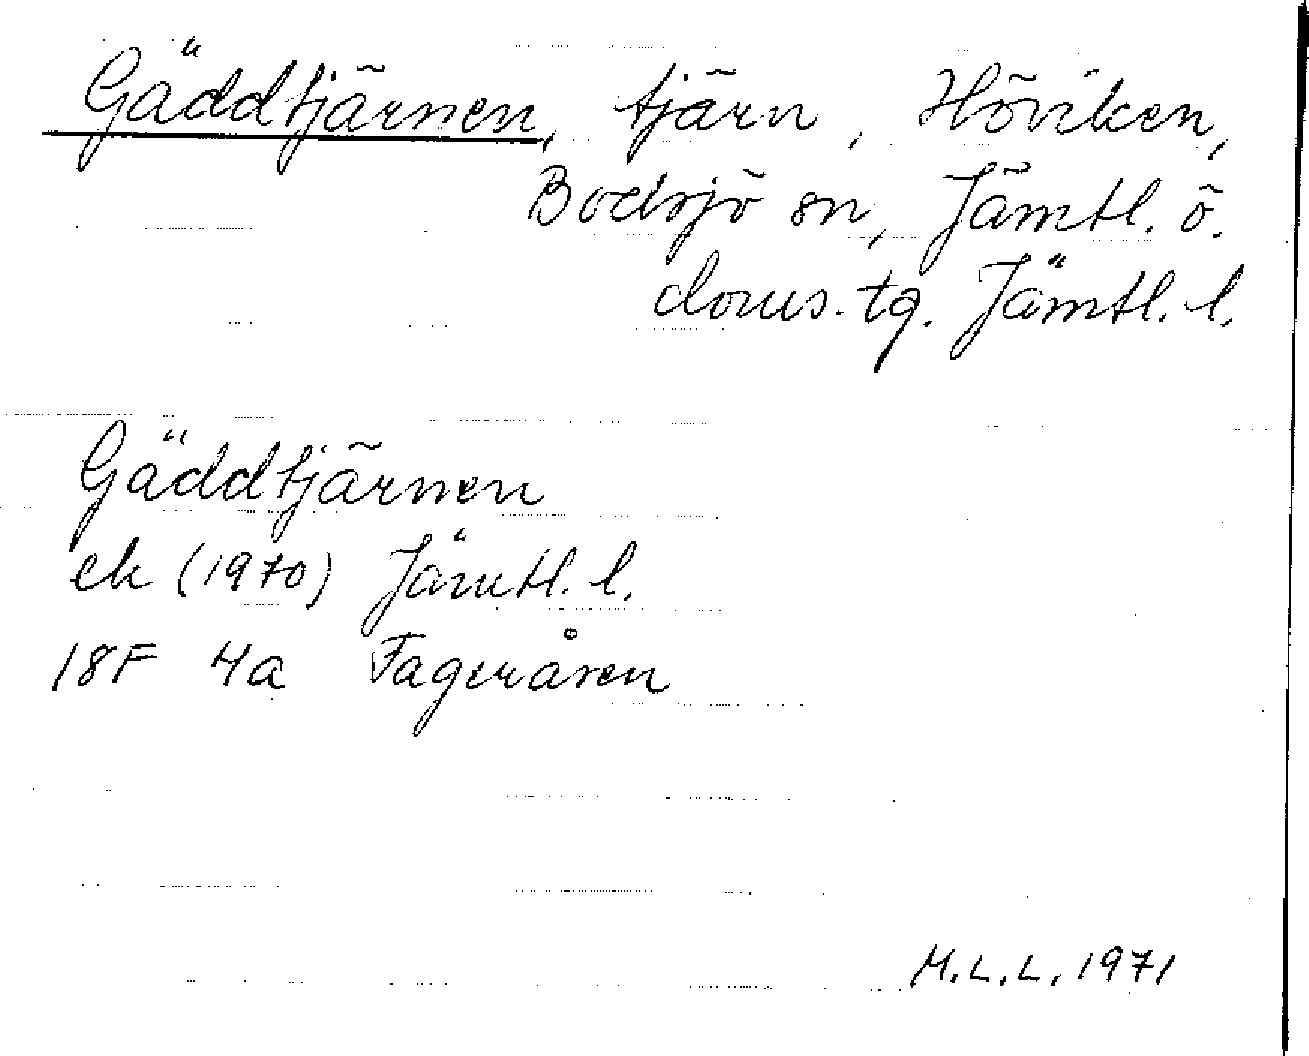 Gäddtjärnen, tjärn, Höviken,
Bodsjö sn, Jämtl. ö.
doms. tg. Jämtl. l.
Gäddtjärnen
ek (1970) Jämtl. l.
18F 4a Fageråsen
M.L.L. 1971